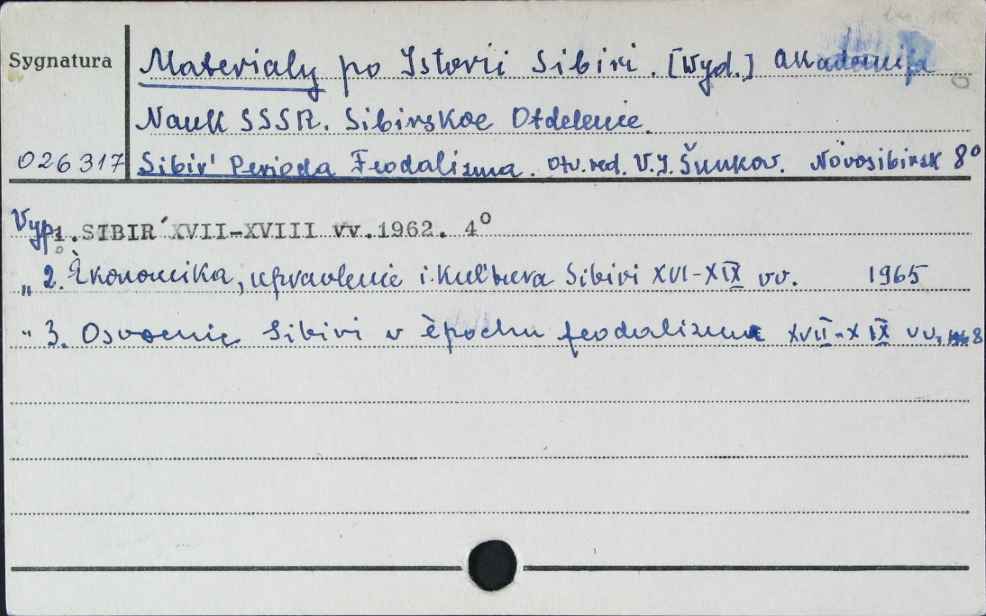 Sygnatura
Materialy po Istorii Sibiri. [Wyd.] Akademija
Nauk SSSR. Sibirskoe Otdelenie.
026317 Sibir' Perioda Feodalizma. Otv. red. V.I. Šunkov. Novosibirsk 8°
Vyp. 1. SIBIR´XVII-XVIII vv.1962. 4°
„ 2. Èkonomika, upravlenie i kul'tura Sibiri XVI-XIX vv. 1965
„ 3. Osvoenie Sibiri v èpochu feodalizma XVII-XIX vv., 1968